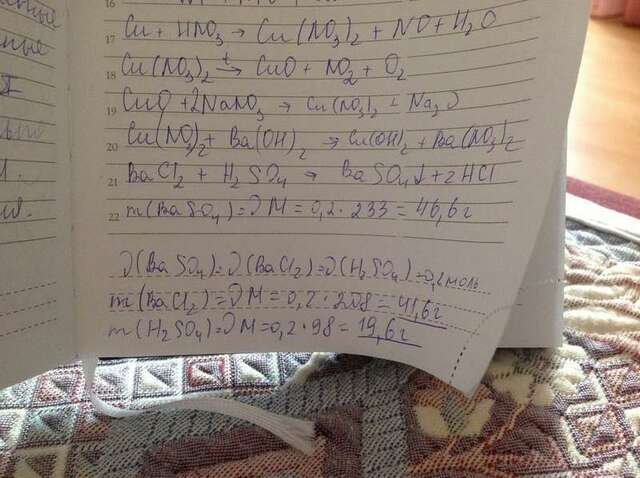 16
17 Cu + HNO₃ → Cu(NO₃)₂ + NO + H₂O
18 Cu(NO₃)₂ →ᵗ CuO + NO₂ + O₂
19 CuO + 2NaNO₃ → Cu(NO₃)₂ + Na₂O
20 Cu(NO₃)₂ + Ba(OH)₂ → Cu(OH)₂ + Ba(NO₃)₂
21 BaCl₂ + H₂SO₄ → BaSO₄↓ + 2HCl
22 m(BaSO₄) = νM = 0,2 · 233 = 46,6 г
ν(BaSO₄) = ν(BaCl₂) = ν(H₂SO₄) = 0,2 моль
m(BaCl₂) = νM = 0,2 · 208 = 41,6 г
m(H₂SO₄) = νM = 0,2 · 98 = 19,6 г